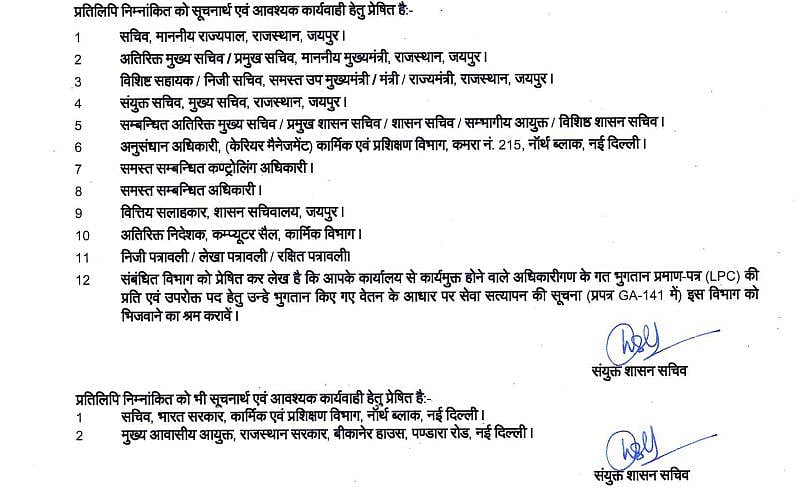 प्रतिलिपि निम्नांकित को सूचनार्थ एवं आवश्यक कार्यवाही हेतु प्रेषित है:-
1 सचिव, माननीय राज्यपाल, राजस्थान, जयपुर।
2 अतिरिक्त मुख्य सचिव / प्रमुख सचिव, माननीय मुख्यमंत्री, राजस्थान, जयपुर।
3 विशिष्ट सहायक / निजी सचिव, समस्त उप मुख्यमंत्री / मंत्री / राज्यमंत्री, राजस्थान, जयपुर।
4 संयुक्त सचिव, मुख्य सचिव, राजस्थान, जयपुर।
5 सम्बन्धित अतिरिक्त मुख्य सचिव / प्रमुख शासन सचिव / शासन सचिव / सम्भागीय आयुक्त / विशिष्ठ शासन सचिव।
6 अनुसंधान अधिकारी, (केरियर मैनेजमेंट) कार्मिक एवं प्रशिक्षण विभाग, कमरा नं. 215, नॉर्थ ब्लाक, नई दिल्ली।
7 समस्त सम्बन्धित कण्ट्रोलिंग अधिकारी।
8 समस्त सम्बन्धित अधिकारी।
9 वित्तिय सलाहकार, शासन सचिवालय, जयपुर।
10 अतिरिक्त निदेशक, कम्प्यूटर सैल, कार्मिक विभाग।
11 निजी पत्रावली / लेखा पत्रावली / रक्षित पत्रावली।
12 संबंधित विभाग को प्रेषित कर लेख है कि आपके कार्यालय से कार्यमुक्त होने वाले अधिकारीगण के गत भुगतान प्रमाण-पत्र (LPC) की
प्रति एवं उपरोक्त पद हेतु उन्हे भुगतान किए गए वेतन के आधार पर सेवा सत्यापन की सूचना (प्रपत्र GA-141 में) इस विभाग को
भिजवाने का श्रम करावें।
संयुक्त शासन सचिव
प्रतिलिपि निम्नांकित को भी सूचनार्थ एवं आवश्यक कार्यवाही हेतु प्रेषित है:-
1 सचिव, भारत सरकार, कार्मिक एवं प्रशिक्षण विभाग, नॉर्थ ब्लाक, नई दिल्ली।
2 मुख्य आवासीय आयुक्त, राजस्थान सरकार, बीकानेर हाउस, पण्डारा रोड, नई दिल्ली।
संयुक्त शासन सचिव